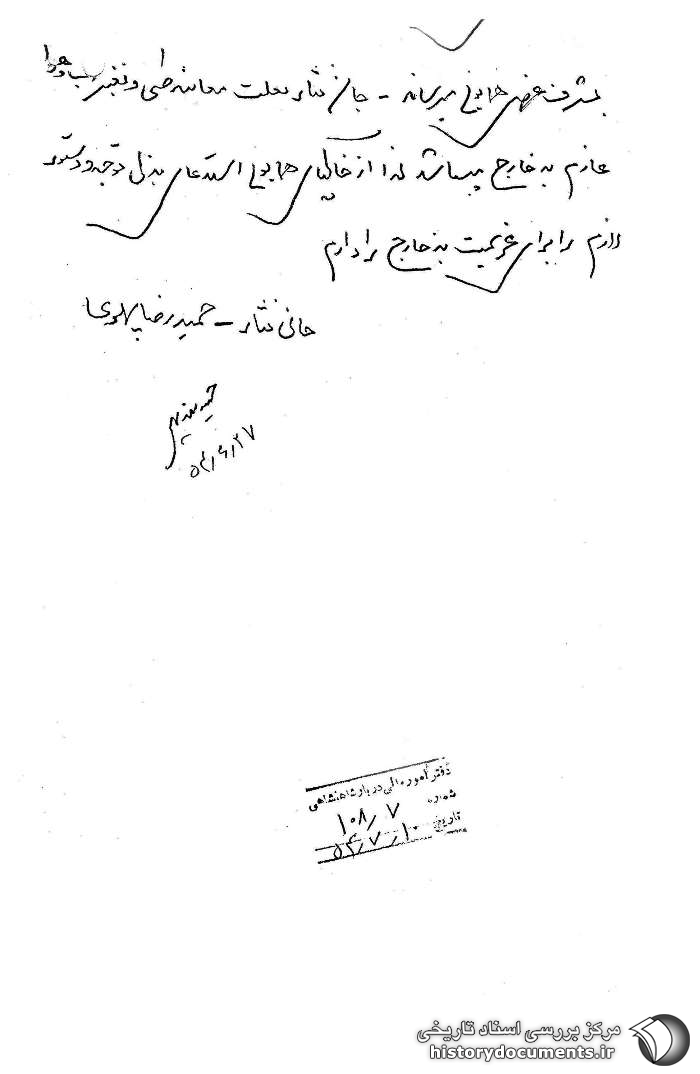 بشرف عرض همایونی میرساند - جان نثار بعلت معاینه طبی و تغییر آب و هوا
عازم به خارج میباشد لذا از خاکپای همایونی استدعای بذل توجه و دستور
لازم را برای عزیمت به خارج را دارم
جانی نثار - حمیدرضا پهلوی
۵۴٫۶٫۲۷
دفتر امور مالی دربار شاهنشاهی
شماره ۱۰۸٫۷
تاریخ ۵۴٫۷٫۱۰
مرکز بررسی اسناد تاریخی
historydocuments.ir